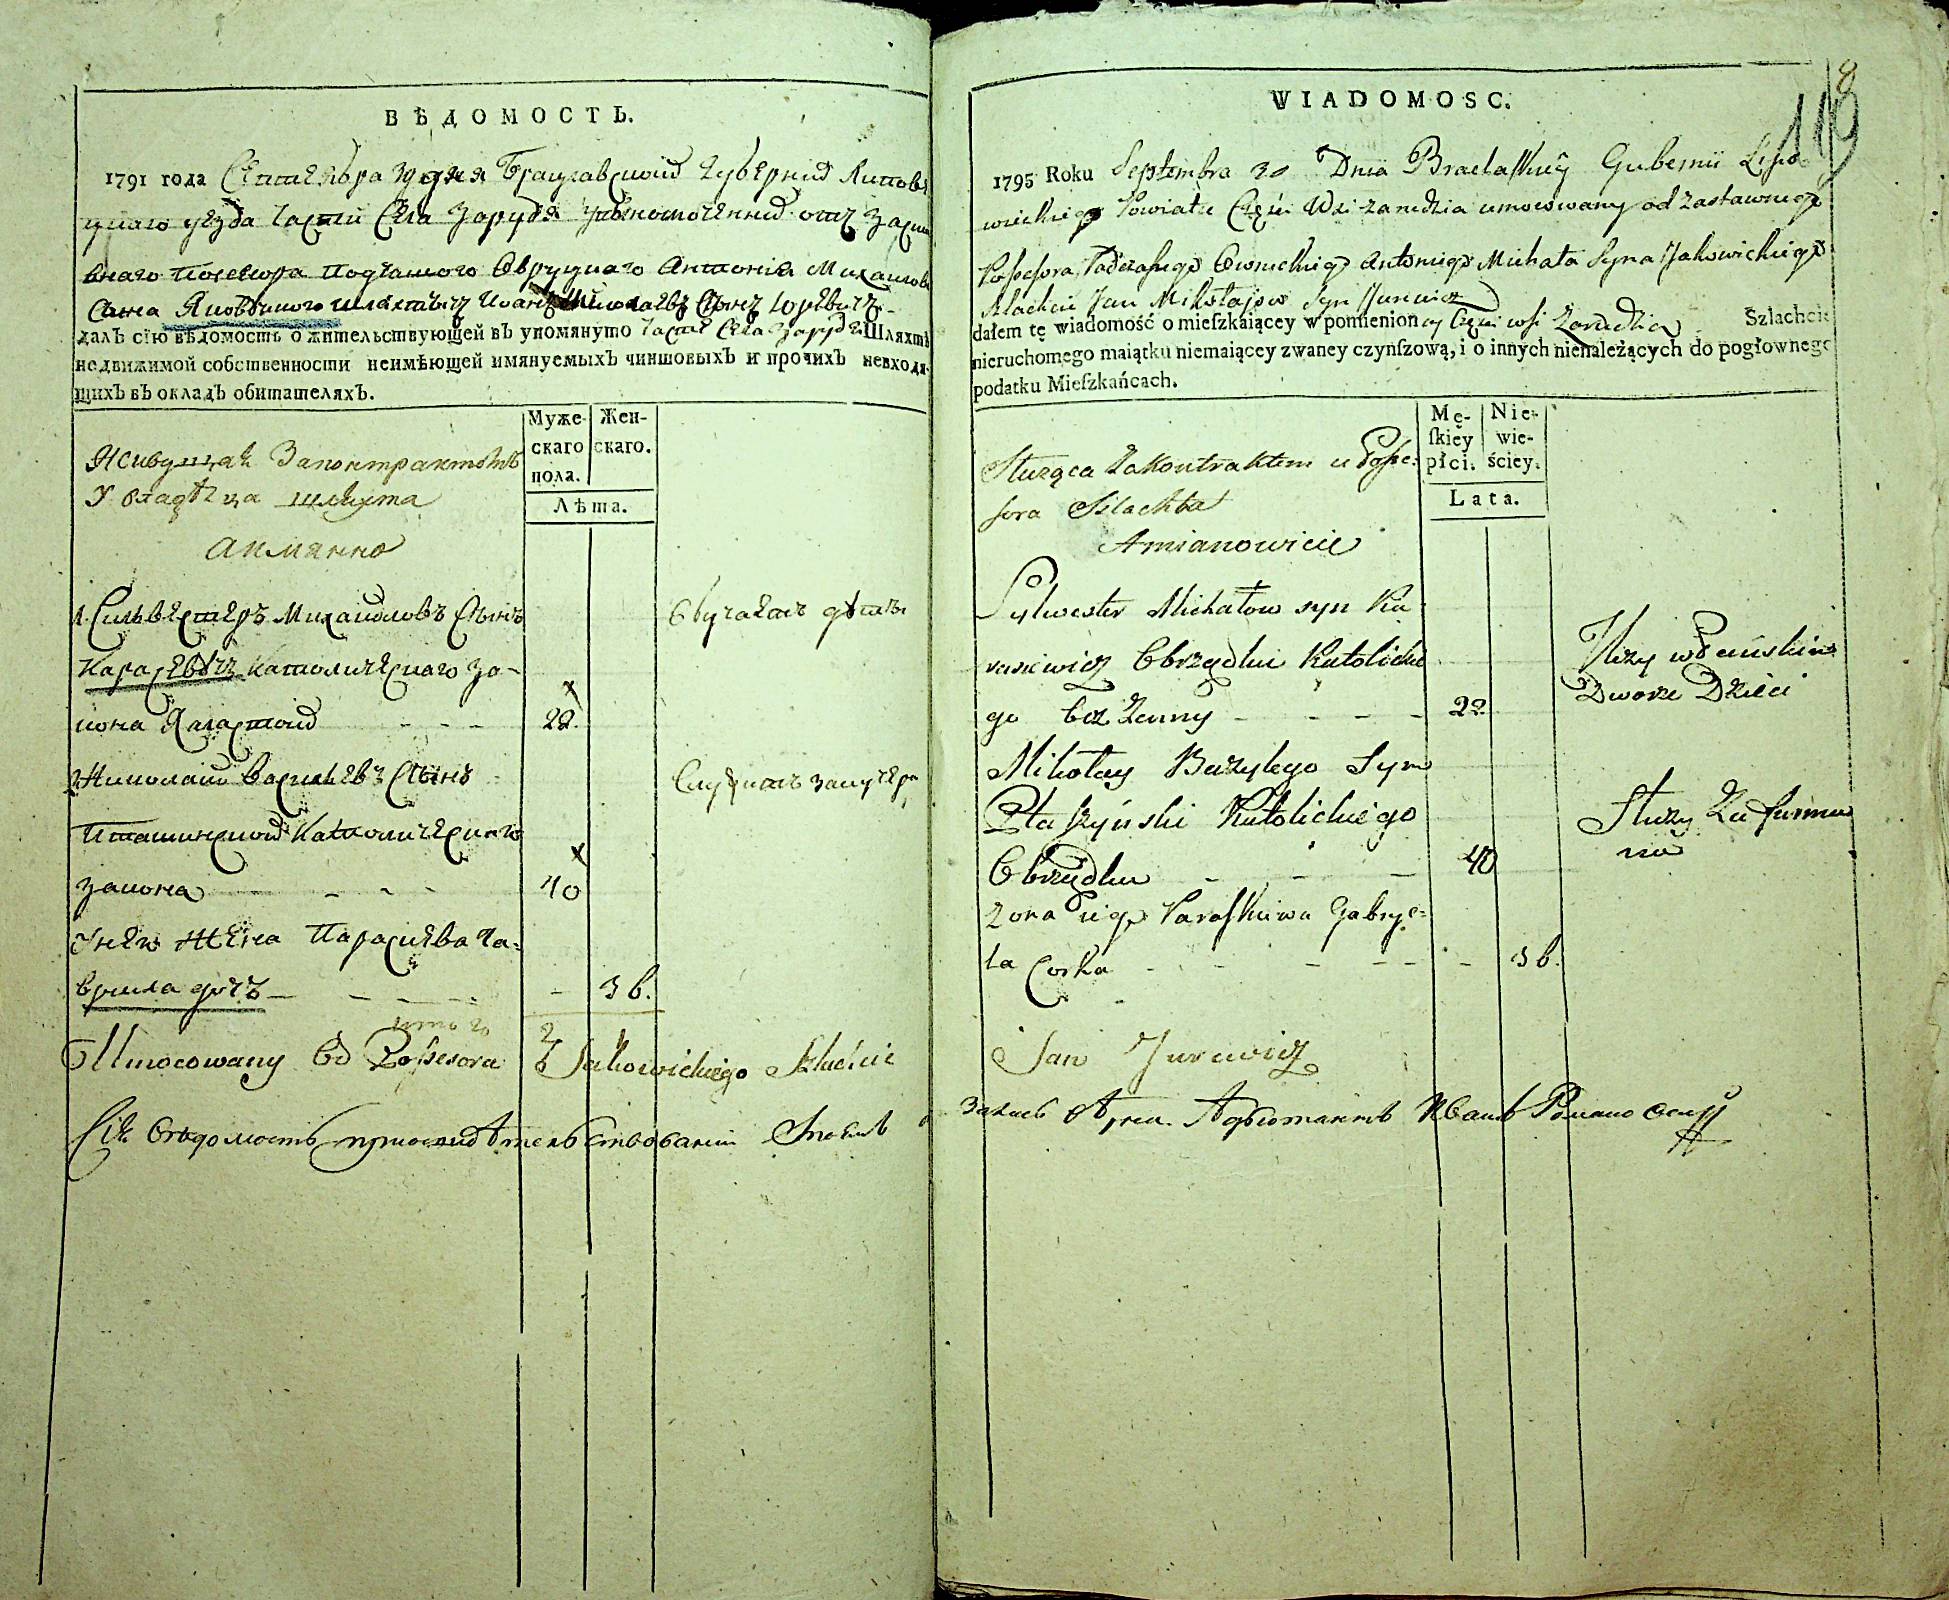 ВѢДОМОСТЬ.
1791 года Сентября 30 дня Брацлавской губернии Липове
цкаго уезда части Села Зарудя уполномоченный отъ заста
внаго посесора подчашого Овруцкаго Антонія Михаилова
Сына Яковицкого шляхтычъ Иванъ Николаевъ Сынъ Юревичъ
далъ сїю вѣдомость о жительствующей въ упомянуто части Села Зарудя Шляхтѣ
недвижимой собственности неимѣющей имянуемыхъ чиншовыхъ и прочихъ невходя-
щихъ въ окладъ обитателяхъ.
Муже-
скаго
пола.
Жен-
скаго.
Лѣта.
Живущая Законтрактомъ
У владѣльца шляхта
а имянно
1. Сильвестеръ Михайловъ Сынъ
Карасевичъ Католическаго за-
кона Холостой 22.
Обучаетъ дѣтей
2. Николай Васильевъ Сынъ
Пташинской Католическаго
закона 40
Служитъ за кучера
У него Жена Параскева Га-
врила дочь 36.
итого 2
Umocowany Od Possesora Jakowickiego Szlachcic
Сія Ведомость
WIADOMOSC.
8
119
1795 Roku Septembra 30 Dnia Bracławskiey Gubernii Lipo-
wieckiego Powiatu Części Wsi Zarudzia umocowany od Zastawnego
Possesora Podczaszego Owruckiego Antoniego Michała Syna Jakowickiego
Szlachcic Jan Mikołajow Syn Jurewicz
dałem tę wiadomość o mieſzkaiącey w pomienioney Części wsi Zarudzia Szlachcie
nieruchomego maiątku niemaiącey zwaney czynſzową, i o innych nienależących do pogłownego
podatku Mieſzkańcach.
Mę-
ſkiey
płci.
Nie-
wie-
ściey.
Lata.
Służąca Zakontraktem u Posse-
sora Szlachta
Amianowicie
Sylwester Michałow syn Ka-
rasiewicz Obrządku Katolickie
go bez Żenny 22
Uczy w Pańskim
Dworze Dzieci
Mikołay Bazylego Syn
Ptaszyński Katolickiego
Obrządku 40
Służy Za furma
na
Zona iego Paraskiewa Gabrye-
la Corka 36.
Jan Jurewicz
Адъютантъ Иванъ